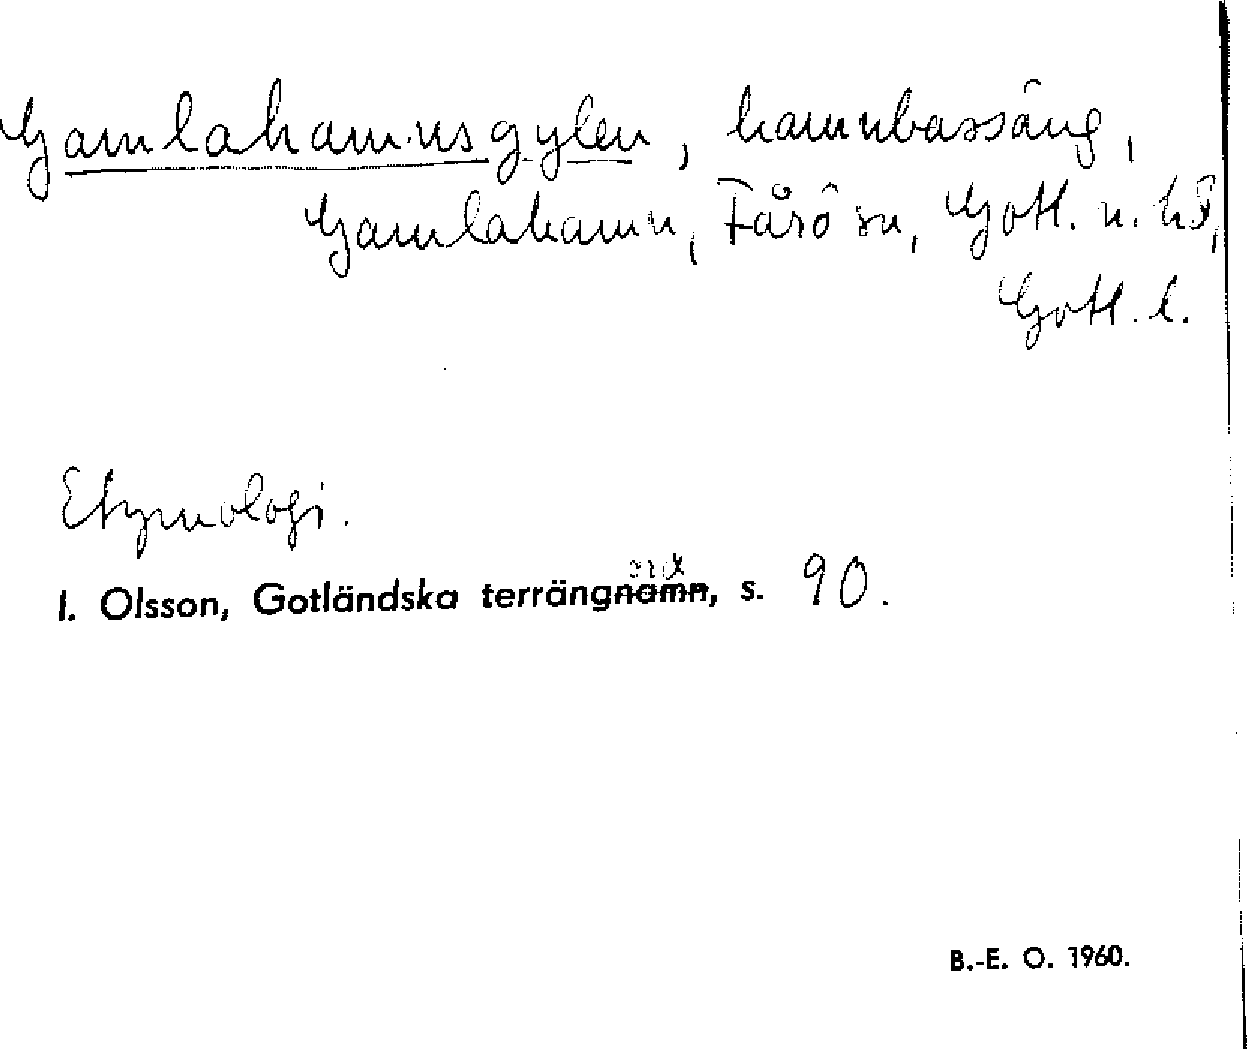 Gamlahamnsgylen, hamnbassäng,
Gamlahamn, Fårö sn, Gotl. n. hd,
Gotl. l.
Etymologi.
ord
I. Olsson, Gotländska terrängnamn, s. 90.
B.-E. O. 1960.